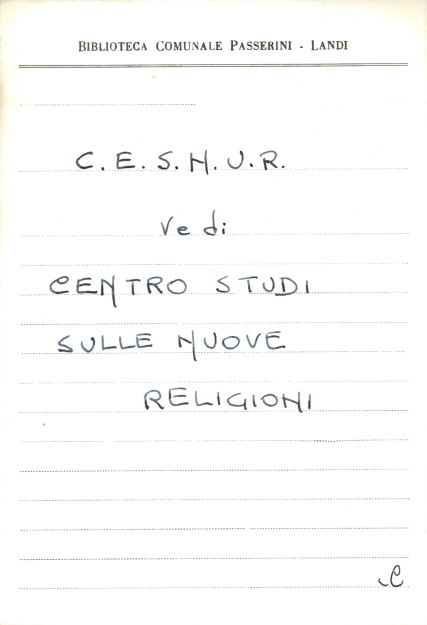 BIBLIOTECA COMUNALE PASSERINI - LANDI
C. E. S. N. U. R.
Vedi
CENTRO STUDI
SULLE NUOVE
RELIGIONI